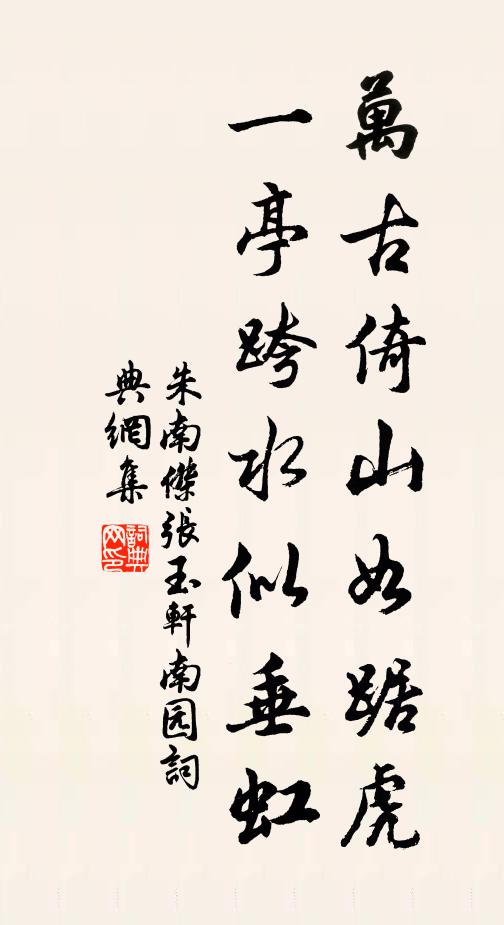 萬古倚山如踞虎
一亭跨水似垂虹
朱南傑張玉軒南园詞
典網集
詞典網印